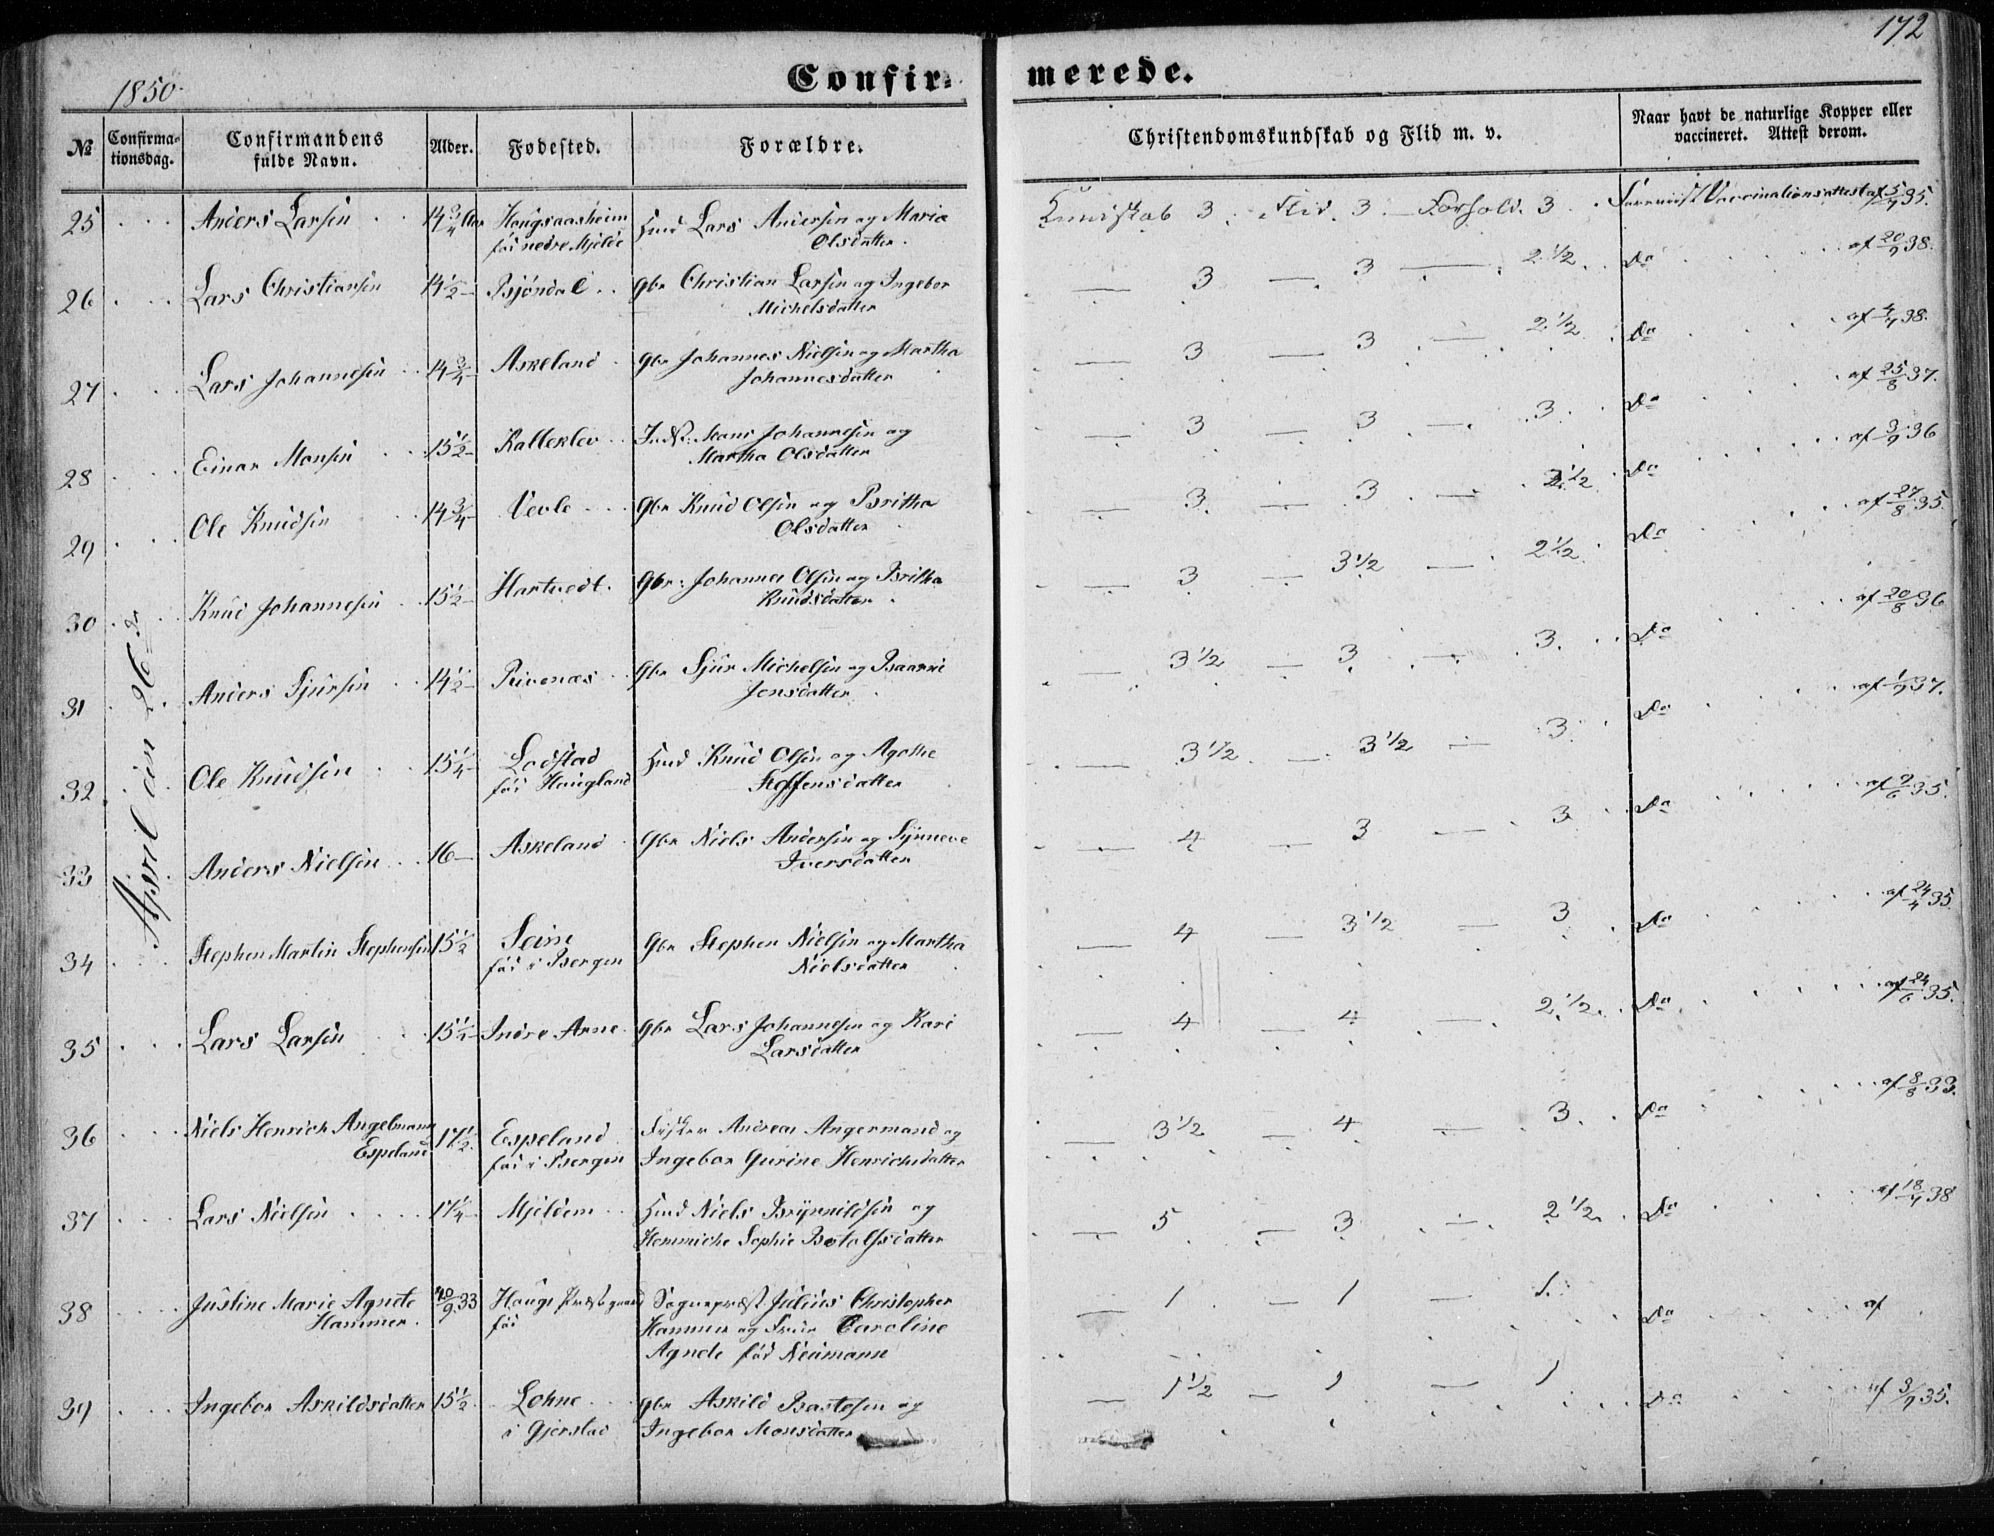 172
1850.
Confir- merede.
№ Confirma-tionsdag. Confirmandens fulde Navn. Alder. Fødested. Forældre. Christendomskundskab og Flid m. v. Naar havt de naturlige Kopper eller vaccineret. Attest derom.
April den 26de
25 Anders Larsen 14 3/4 Aar Haugsaasheim Hmd Lars Andersen og Maria Kundskab 3. Flid. 3 Forhold. 3 Vaccinationsattest af 5/9 35.
fød nedre Mjelde Olsdatter
26 Lars Christiansen 14 1/2 Bjöndal Gbr Christian Larsen og Ingebor — 3 — 3 — 2 1/2 Do af 20/9 38.
Michelsdatter
27 Lars Johannesen 14 3/4 Askeland Gbr Johannes Nielsen og Martha — 3 — 3 — 2 1/2 Do af 4/4 38.
Johannesdatter
28 Einar Monsen 15 1/2 Kalleklev Mons Johannesen og — 3 — 3 — 3 Do af 25/8 37.
Martha Olsdatter
29 Ole Knudsen 14 3/4 Vevle Gbr Knud Olsen og Britha — 3 — 3 — 2 1/2 Do af 3/9 36
Olsdatter
30 Knud Johannesen 15 1/2 Hartvedt Gbr: Johannes Olsen og Britha — 3 — 3 1/2 — 2 1/2 Do af 27/8 35.
Knudsdatter
31 Anders Sjursen 14 1/2 Rivenæs Gbr Sjur Michelsen og — 3 1/2 — 3 — 3 Do af 20/8 36
Jonsdatter
32 Ole Knudsen 15 1/4 Lodstad Hmd Knud Olsen og Agathe — 3 1/2 — 3 1/2 — 3 Do af 1/9 37.
fød Haugland Steffensdatter
33 Anders Nielsen 16 Askeland Gbr Niels Andersen og Synneve — 4 — 3 — 3 Do af 2/6 35.
Iversdatter
34 Stephen Martin Stephensen 15 1/2 Seim Gbr Stephen Nielsen og Martha — 4 — 3 1/2 — 3 Do af 24/4 35.
fød i Bergen Nielsdatter
35 Lars Larsen 15 1/2 Indre Arne Gbr Lars Johannesen og Kari — 4 — 4 — 2 1/2 Do af 24/6 35.
Larsdatter
36 Niels Henrich Angelmann 17 1/2 Espeland Fisker Andreas Angermand og — 3 1/2 — 4 — 3 Do af 8/8 33.
Espeland fød i Bergen Ingebor Gurine Henrichsdatter
37 Lars Nielsen 17 1/4 Mjeldem Hmd Niels Brynnildsen og — 5 — 3 — 2 1/2 Do af 18/4 38
Hemmiche Sophie Botolfsdatter
38 Justine Marie Agnete 20/9 33 Haugs Præstegaard Sognepræst Julius Christopher — 1 — 1 — 1. Do af
Hammer. fød Hammer og Frue Caroline
Agnete fød Neumann
39 Ingebor Askildsdatter 15 1/2 Lohne Gbr Askild Bastesen og — 1 1/2 — 1 — 1 Do af 3/9 35.
i Gjerstad Ingebor Monsdatter